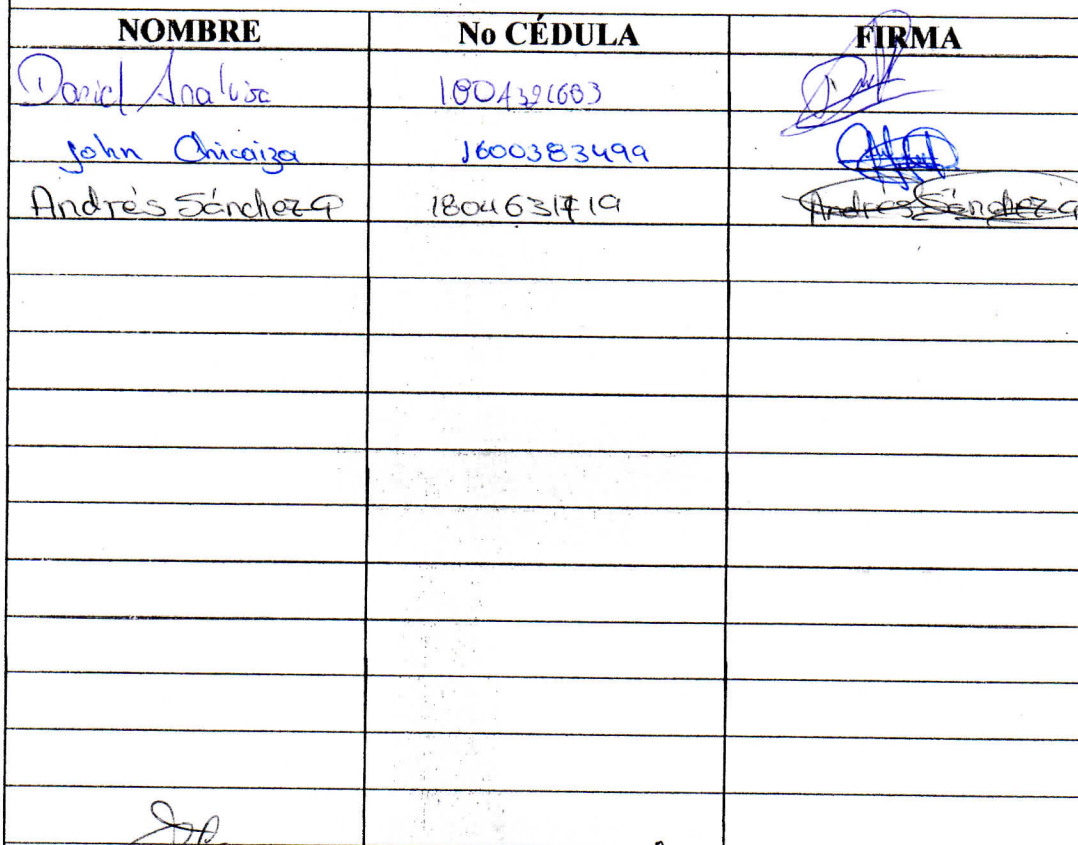 NOMBRE No CÉDULA FIRMA
Daniel Analuisa
John Chicaiza 1600383499
Andrés Sánchez G 1804631719 Andres Sánchez G